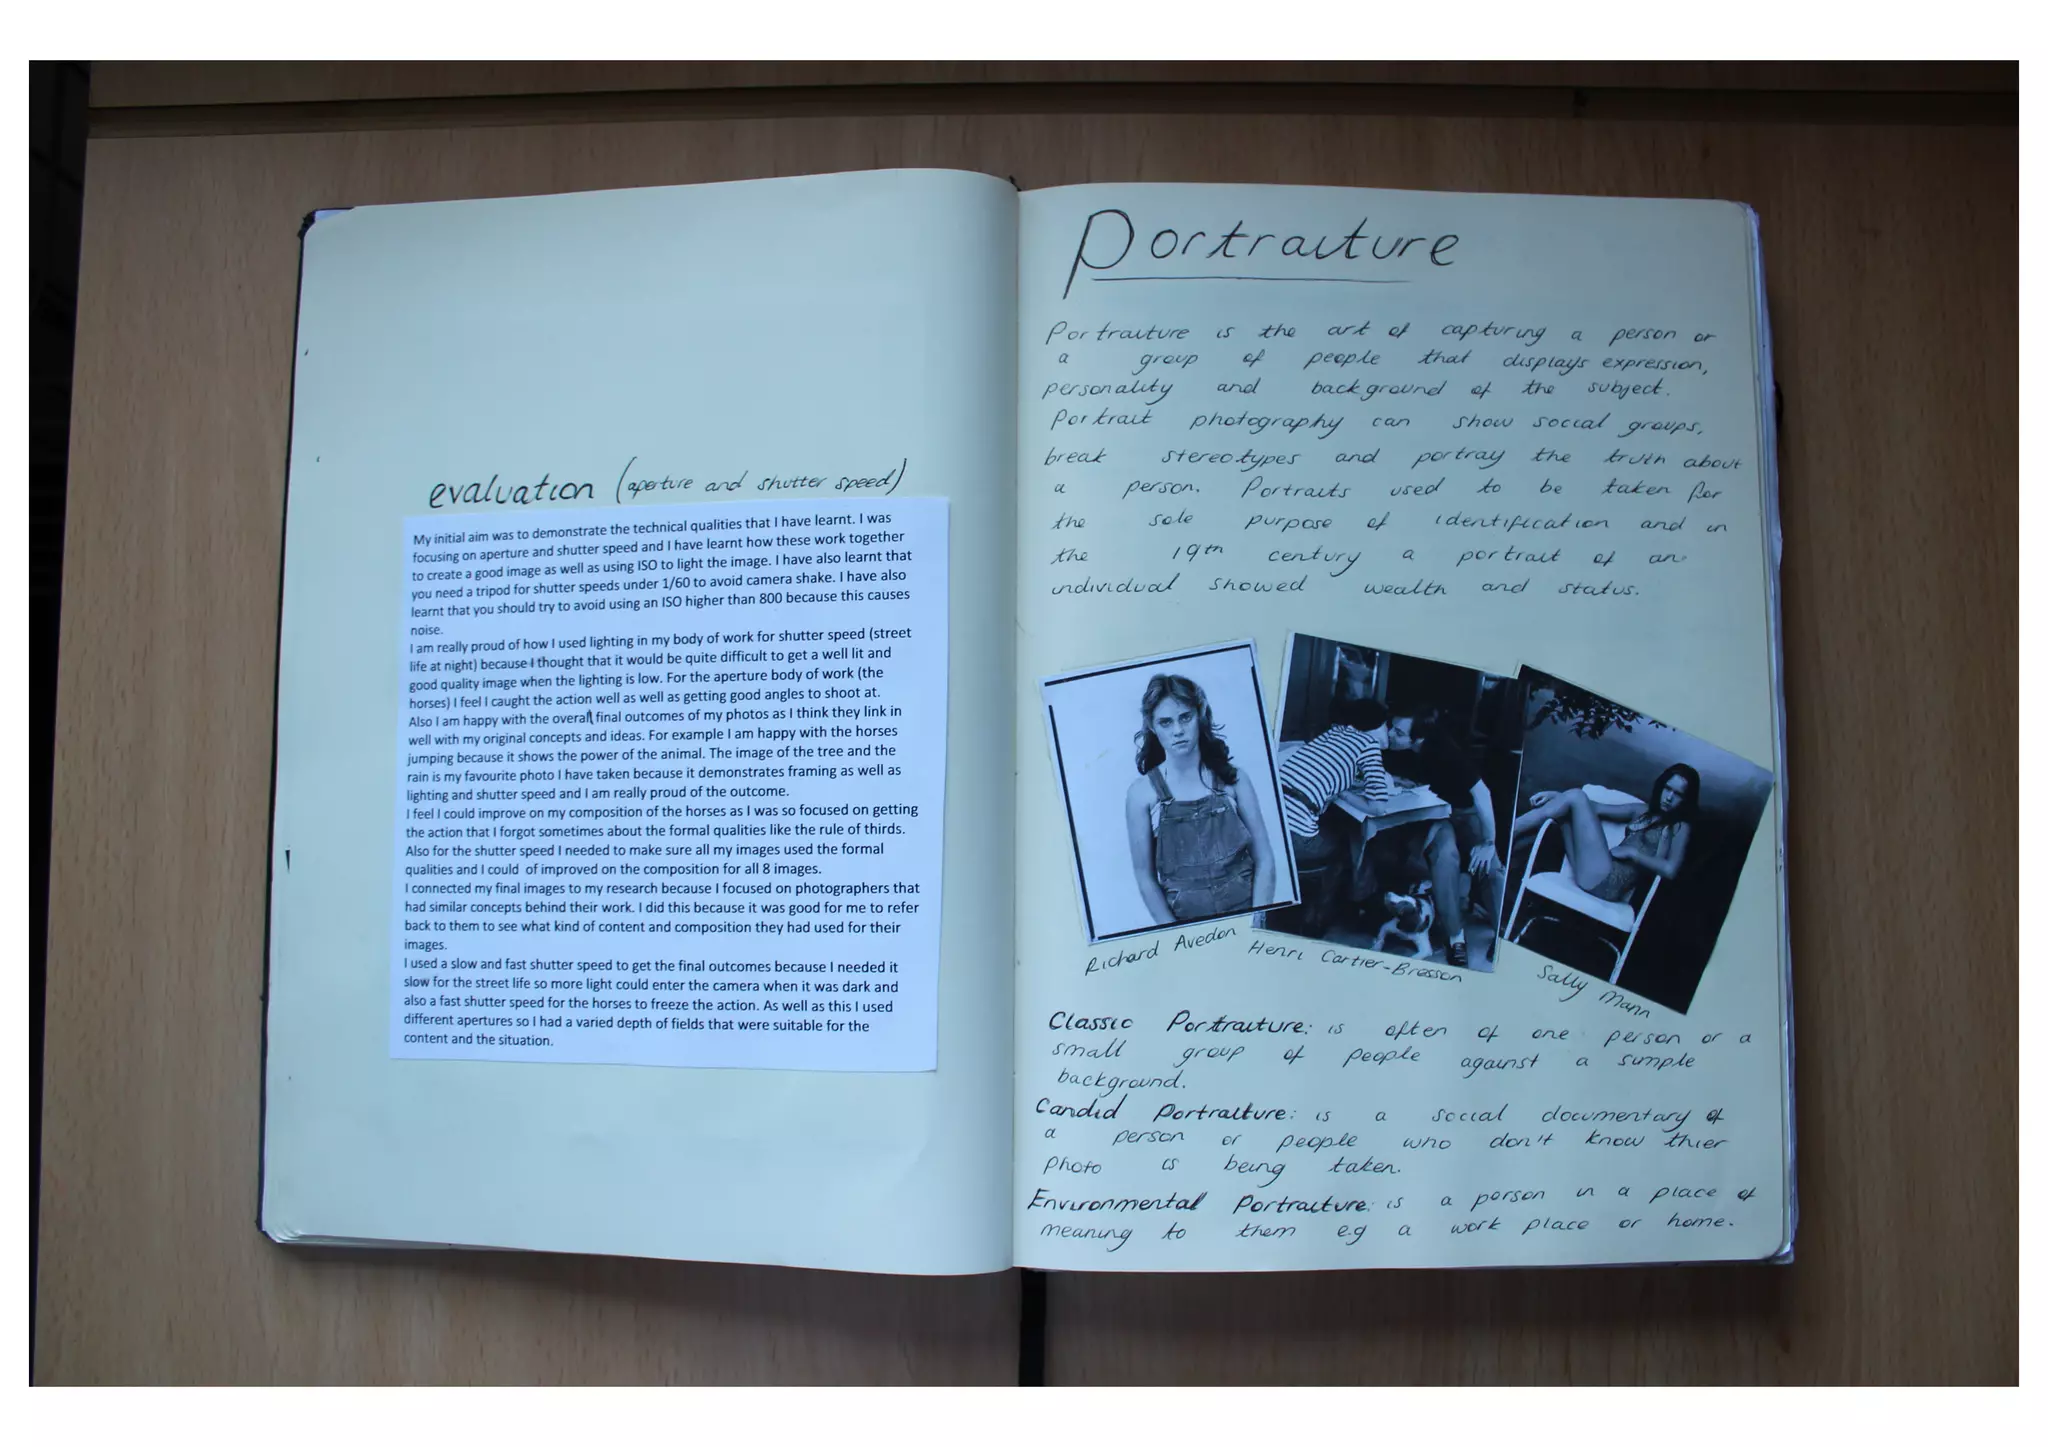 evaluation (aperture and shutter speed)
My initial aim was to demonstrate the technical qualities that I have learnt. I was
focusing on aperture and shutter speed and I have learnt how these work together
to create a good image as well as using ISO to light the image. I have also learnt that
you need a tripod for shutter speeds under 1/60 to avoid camera shake. I have also
learnt that you should try to avoid using an ISO higher than 800 because this causes
noise.
I am really proud of how I used lighting in my body of work for shutter speed (street
life at night) because I thought that it would be quite difficult to get a well lit and
good quality image when the lighting is low. For the aperture body of work (the
horses) I feel I caught the action well as well as getting good angles to shoot at.
Also I am happy with the overall final outcomes of my photos as I think they link in
well with my original concepts and ideas. For example I am happy with the horses
jumping because it shows the power of the animal. The image of the tree and the
rain is my favourite photo I have taken because it demonstrates framing as well as
lighting and shutter speed and I am really proud of the outcome.
I feel I could improve on my composition of the horses as I was so focused on getting
the action that I forgot sometimes about the formal qualities like the rule of thirds.
Also for the shutter speed I needed to make sure all my images used the formal
qualities and I could of improved on the composition for all 8 images.
I connected my final images to my research because I focused on photographers that
had similar concepts behind their work. I did this because it was good for me to refer
back to them to see what kind of content and composition they had used for their
images.
I used a slow and fast shutter speed to get the final outcomes because I needed it
slow for the street life so more light could enter the camera when it was dark and
also a fast shutter speed for the horses to freeze the action. As well as this I used
different apertures so I had a varied depth of fields that were suitable for the
content and the situation.
Portraiture
Portraiture is the art of capturing a person or
a group of people that displays expression,
personality and background of the subject.
Portrait photography can show social groups,
break stereotypes and portray the truth about
a person. Portraits used to be taken for
the sole purpose of identification and in
the 19th century a portrait of an
individual showed wealth and status.
Richard Avedon
Henri Cartier-Bresson
Sally Mann
Classic Portraiture: is often of one person or a
small group of people against a simple
background.
Candid Portraiture: is a social documentary of
a person or people who don't know thier
photo is being taken.
Environmental Portraiture: is a person in a place of
meaning to them e.g a work place or home.